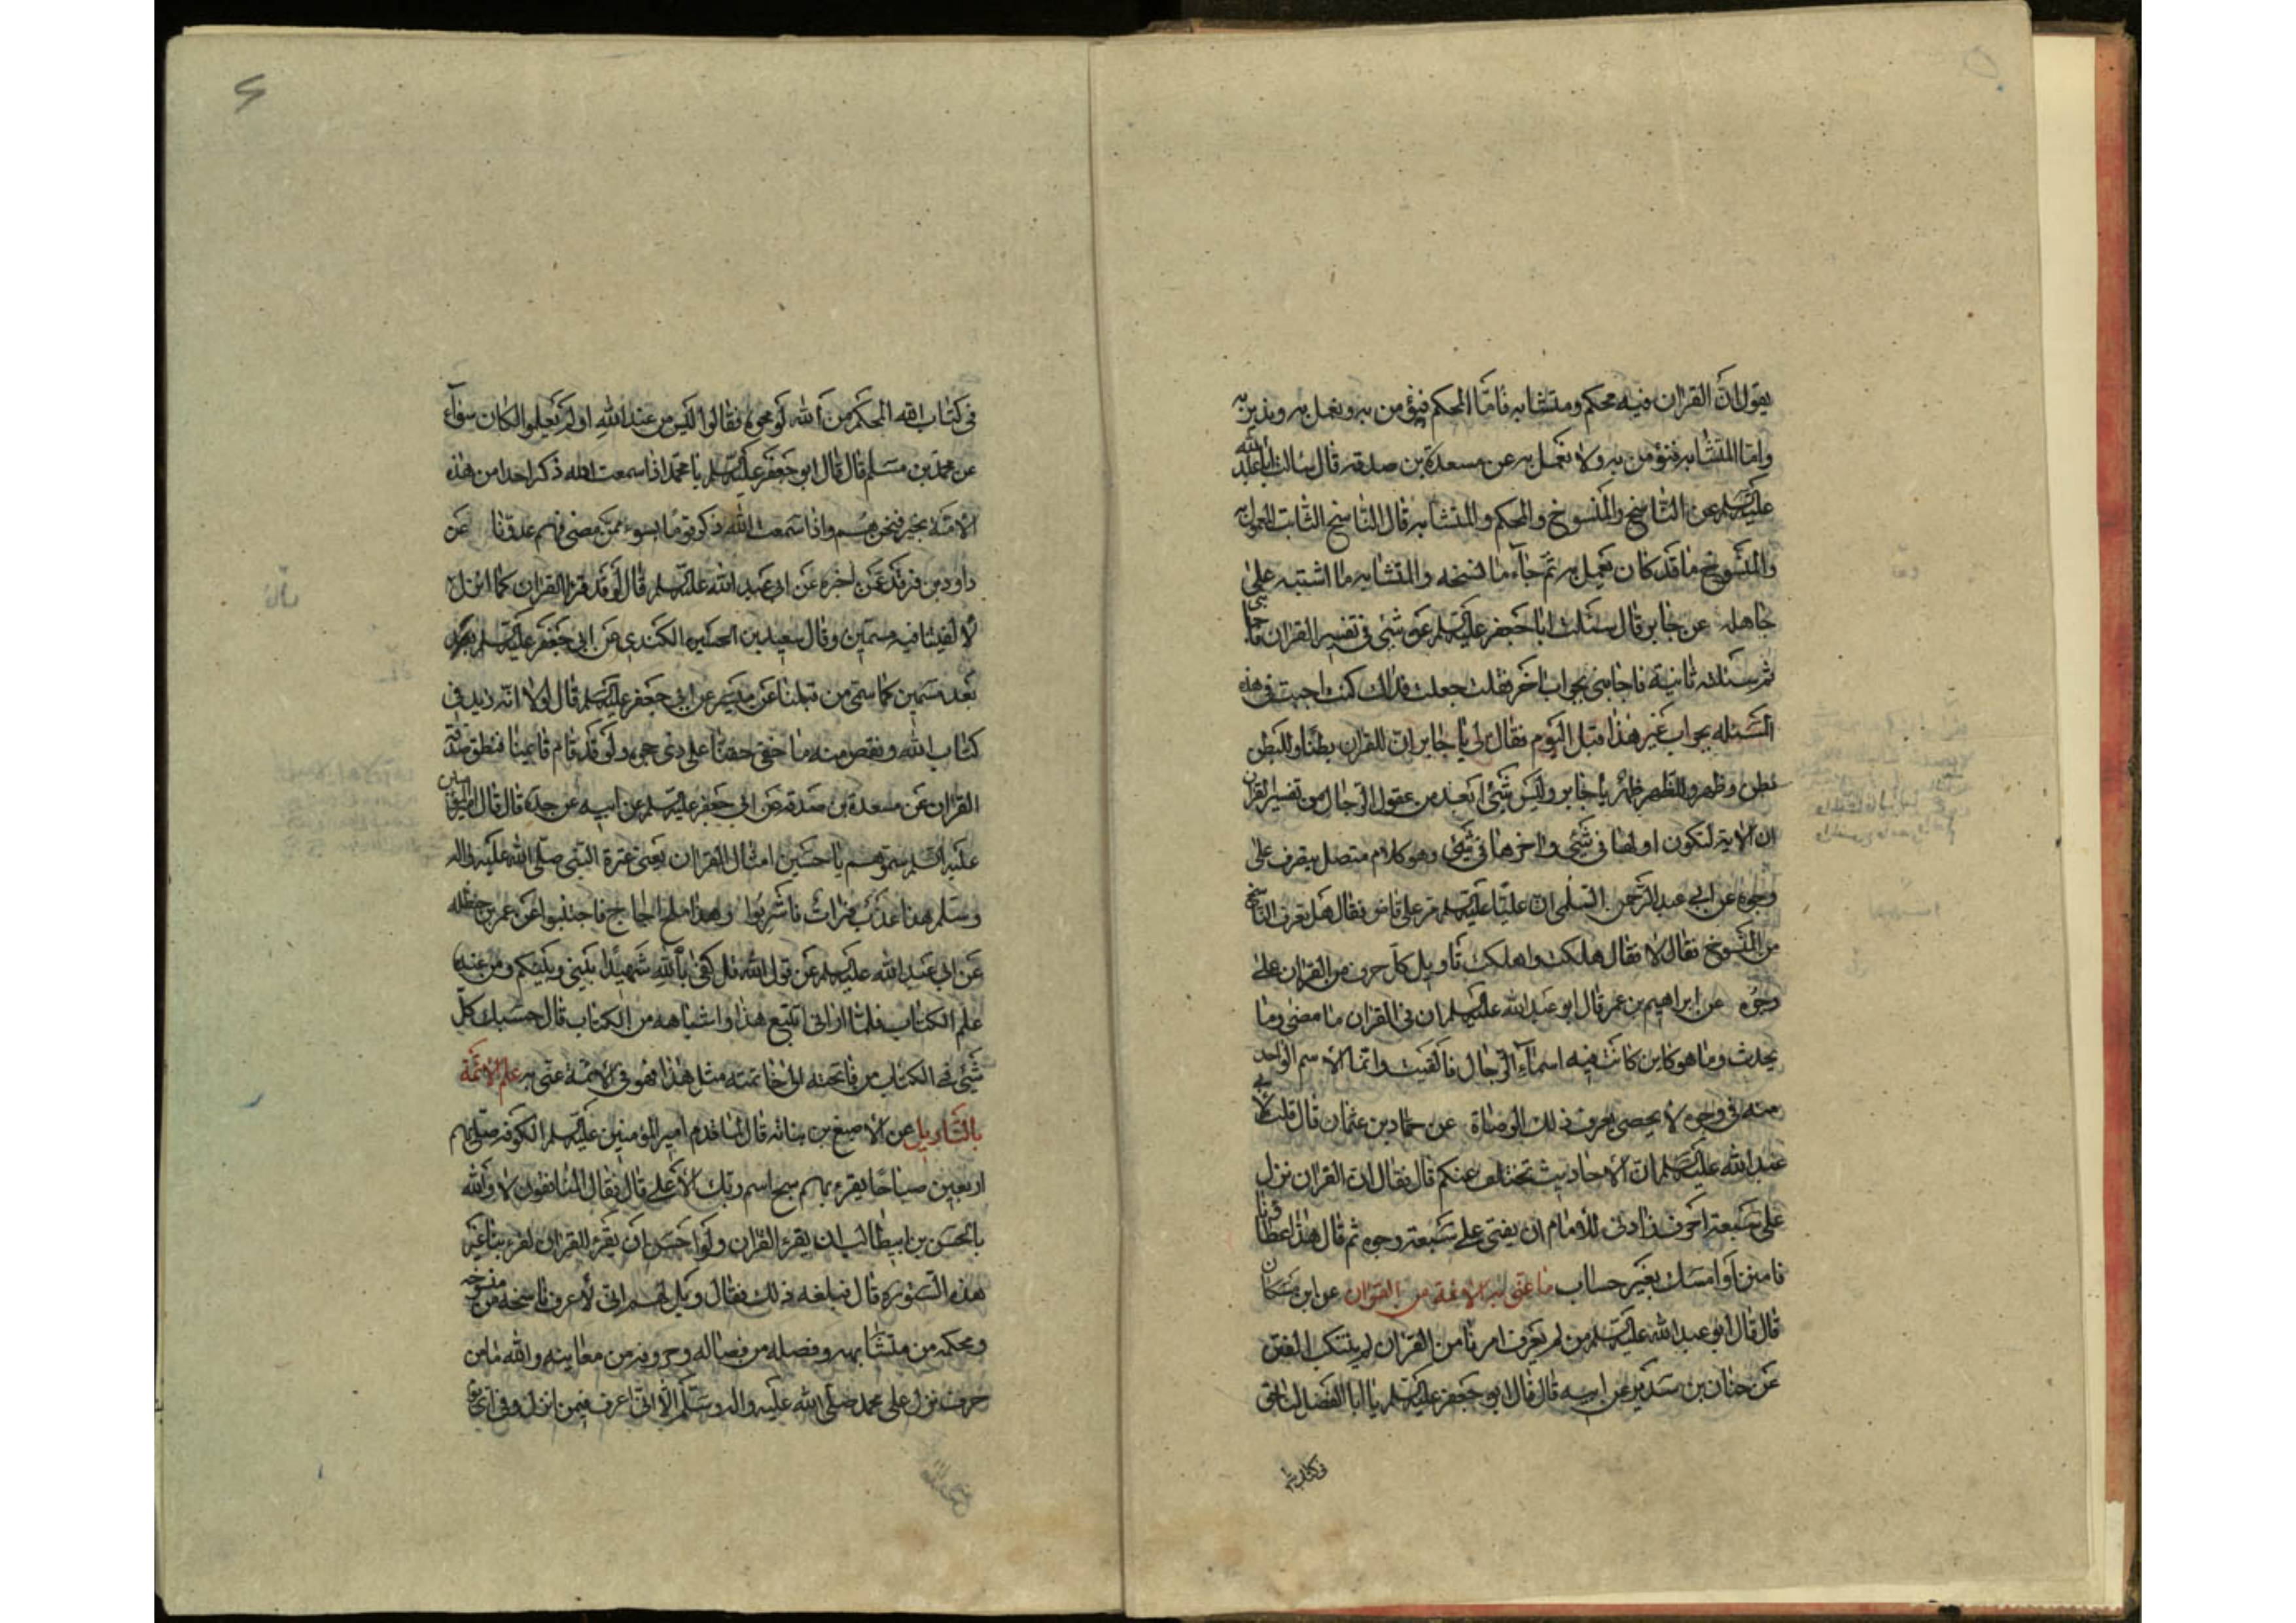 يقول انّ القران فيه محكم ومتشابه فامّا المحكم فنؤمن به ونعمل به وندين به
وامّا المتشابه فنؤمن به ولا نعمل به عن مسعدة بن صدقة قال سالت ابا عبد الله
عليه السلم عن الناسخ والمنسوخ والمحكم والمتشابه قال الناسخ الثابت المعمول به
والمنسوخ ما قد كان يعمل به ثم جاء ما نسخه والمتشابه ما اشتبه على
جاهله عن جابر قال سئلت ابا جعفر عليه السلم عن شئ في تفسير القران فاجابني
ثم سئلته ثانية فاجابني بجواب اخر فقلت جعلت فداك كنت اجبت في هذه
المسئلة بجواب غير هذا قبل اليوم فقال لي يا جابر ان للقران بطنا وللبطن
بطن وظهر وللظهر ظهر يا جابر وليس شئ ابعد من عقول الرجال من تفسير القران
ان الاية لتكون اولها في شئ واخرها في شئ وهو كلام متصل يتصرف على
وجوه عن ابي عبد الرحمن السلمى ان عليّا عليه السلم مر على قاض فقال هل تعرف الناسخ
من المنسوخ فقال لا فقال هلكت واهلكت تاويل كل حرف من القران على
وجوه عن ابراهيم بن عمر قال ابو عبد الله عليه السلم ان في القران ما مضى وما
يحدث وما هو كاين كانت فيه اسماء الرجال فالقيت وانما الاسم الواحد
منه في وجوه لا يحصى يعرف ذلك الوصاة عن حماد بن عثمان قال قلت لابي
عبد الله عليه السلم ان الاحاديث تختلف عنكم قال فقال ان القران نزل
على سبعة احرف فادنى للامام ان يفتى على سبعة وجوه ثم قال هذا عطاؤنا
فامنن او امسك بغير حساب ما عنى به الائمة من القران عن ابن مسكان
قال قال ابو عبد الله عليه السلم من لم يعرف امرنا من القران لم يتنكب الفتن
عن حنان بن سدير عن ابيه قال قال ابو جعفر عليه السلم يا ابا الفضل لنا حق
في كتاب الله
في كتاب الله المحكم من الله لو محوه فقالوا ليس من عند الله او لم يعلموا لكان سواء
عن محمد بن مسلم قال قال ابو جعفر عليه السلم يا محمد اذا سمعت الله ذكر احدا من هذه
الامة بخير فنحن هم واذا سمعت الله ذكر قوما بسوء ممن مضى فهم عدونا عن
داود بن فرقد عمن اخبره عن ابي عبد الله عليه السلم قال لو قد قرء القران كما انزل
لالفيتنا فيه مسمين وقال سعيد بن الحسين الكندي عن ابي جعفر عليه السلم
بعد مسمين كما سمى من قبلنا عن ميسر عن ابي جعفر عليه السلم قال لولا انه زيد في
كتاب الله ونقص منه ما خفى حقنا على ذي حجى ولو قد قام قائمنا فنطق صدقه
القران عن مسعدة بن صدقة عن ابي جعفر عليه السلم عن ابيه عن جده قال قال امير المؤمنين
عليه السلم سموهم يا حسين امثال القران يعنى عترة النبى صلى الله عليه واله
وسلم هذا عذب فرات فاشربوا وهذا ملح اجاج فاجتنبوا عن عمر بن حنظله
عن ابي عبد الله عليه السلم عن قول الله قل كفى بالله شهيدا بيني وبينكم ومن عنده
علم الكتاب فلما راني اتتبع هذا واشباهه من الكتاب قال حسبك كل
شئ في الكتاب من فاتحته الى خاتمته مثل هذا فهو في الائمة عنى به علم الائمة
بالتاويل عن الاصبغ بن نباته قال لما قدم امير المؤمنين عليه السلم الكوفة صلى بهم
اربعين صباحا يقرء بهم سبح اسم ربك الاعلى قال فقال المنافقون لا والله
ما يحسن بن ابيطالب ان يقرء القران ولو احسن ان يقرء القران لقرء بنا غير
هذه السورة قال فبلغه ذلك فقال ويل لهم اني لاعرف ناسخه من منسوخه
ومحكمه من متشابهه وفصله من فصاله وحروفه من معانيه والله ما من
حرف نزل على محمد صلى الله عليه واله وسلم الا انى اعرف فيمن انزل وفي اي يوم